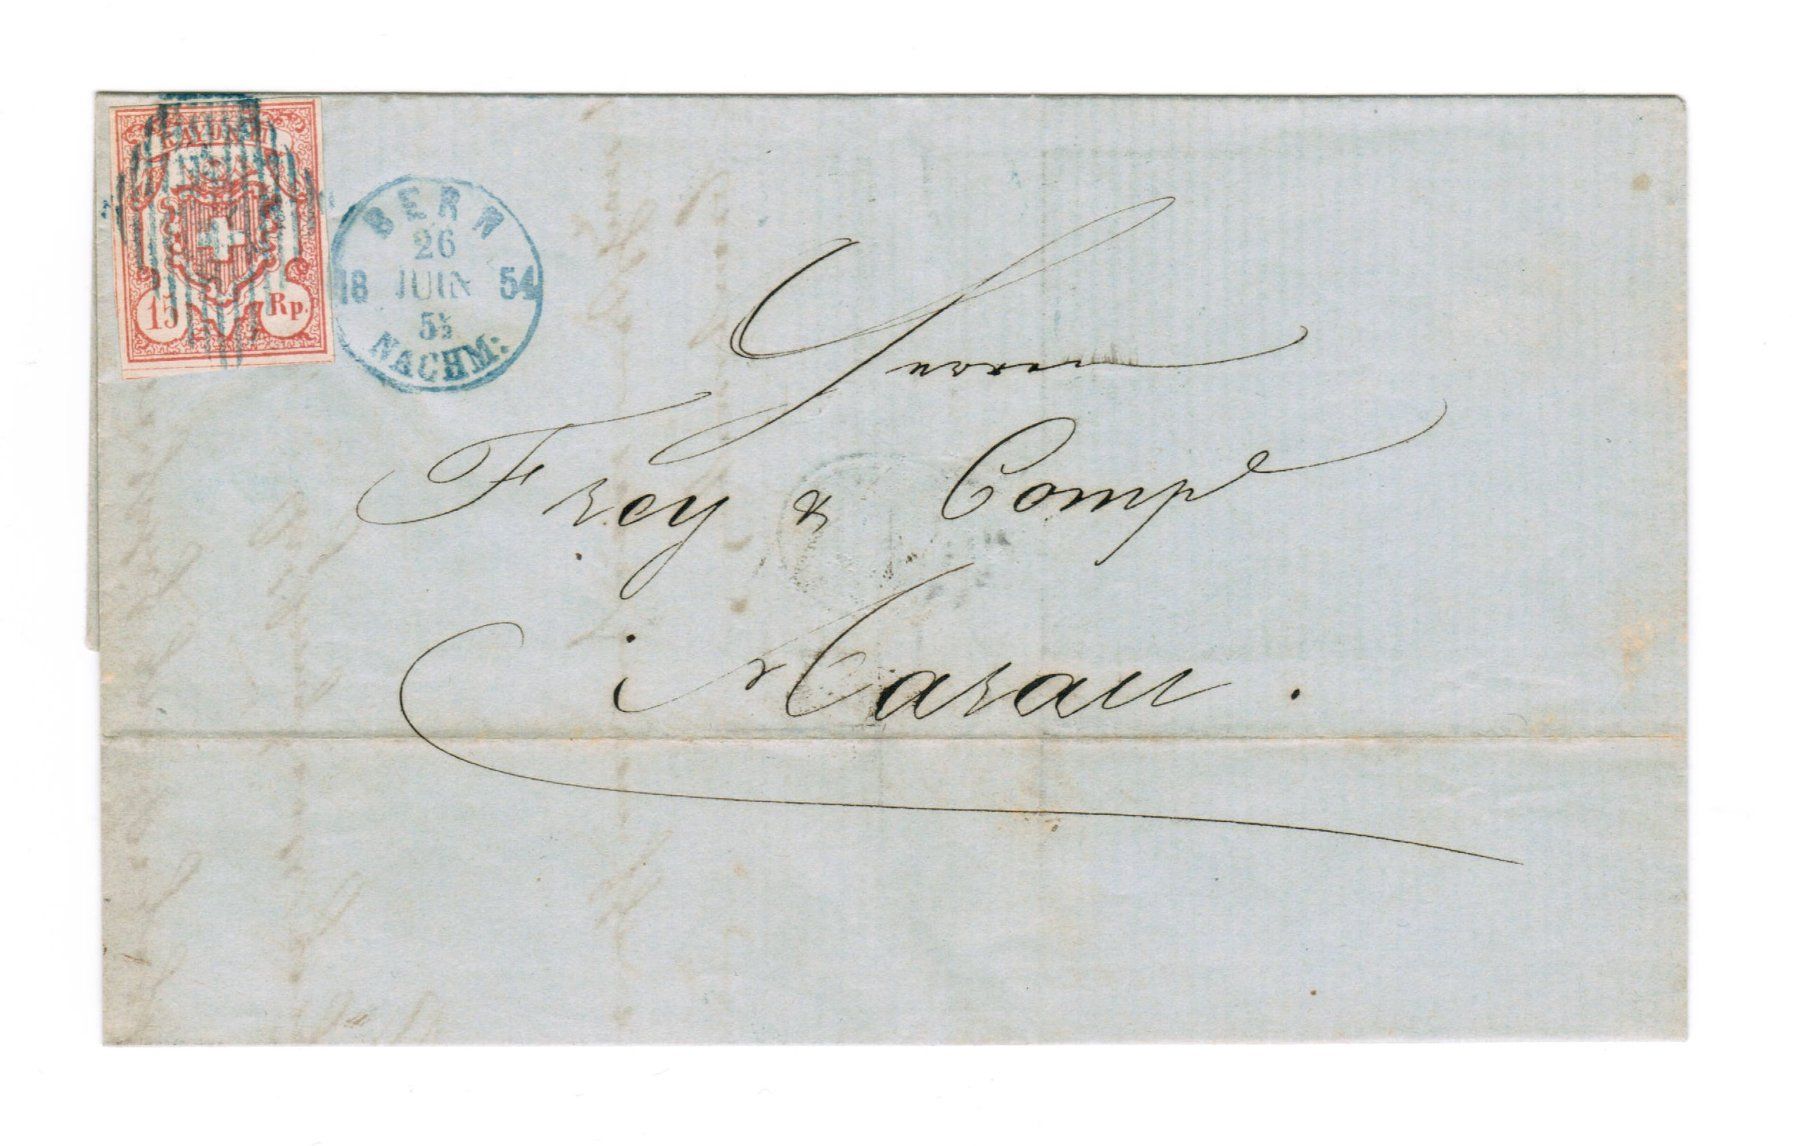 RAYON III
15 Rp.
BERN
26
18 JUIN 54
5½
NACHM:
Herren
Frey & Compe
in Aarau.